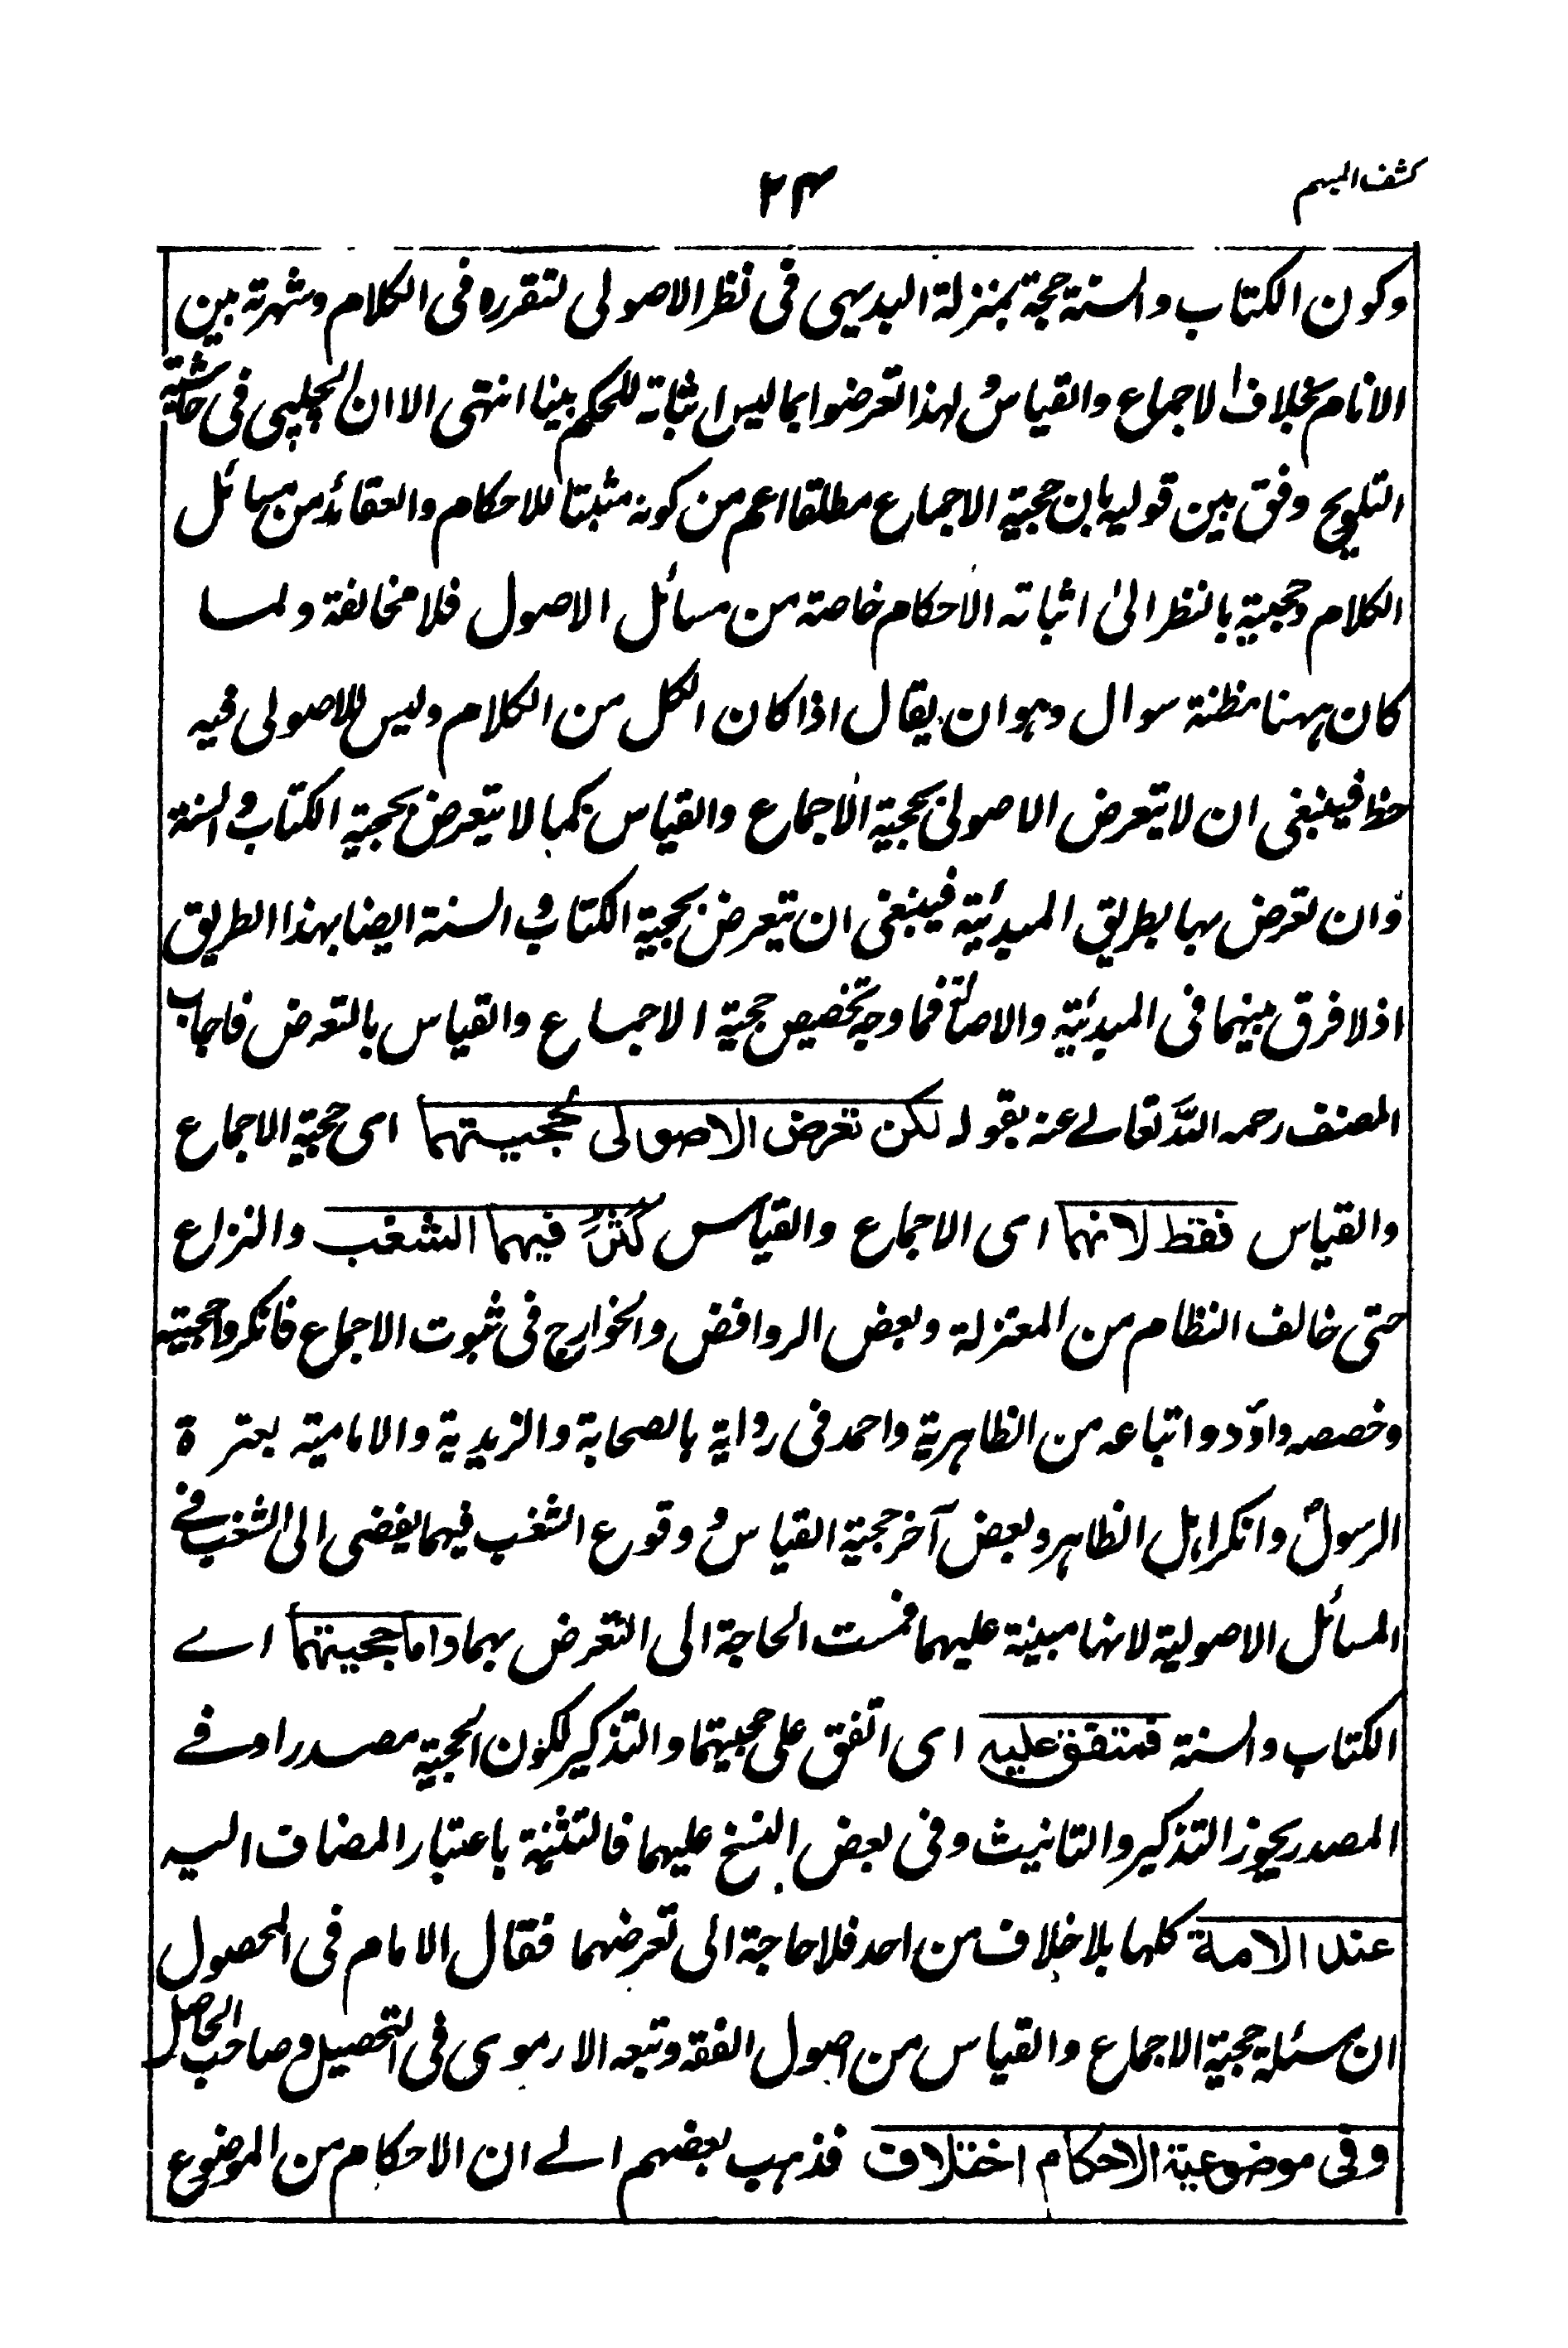 كشف المبهم
٢٤
وكون الكتاب والسنة حجة بمنزلة البديهى فى نظر الاصولى لتقرره فى الكلام وشهرته بين
الانام بخلاف الاجماع والقياس ولهذا تعرضوا بما ليس اثباته للحكم بينا انتهى الا ان الچلپى فى حاشية
التلويح وفق بين قوليه بان حجية الاجماع مطلقا اعم من كونه مثبتا للاحكام والعقائد من مسائل
الكلام وحجية بالنظر الى اثباته الاحكام خاصة من مسائل الاصول فلا مخالفة ولما
كان ههنا مظنة سوال وهو ان يقال اذا كان الكل من الكلام وليس للاصولى فيه
حظ فينبغى ان لا يتعرض الاصولى بحجية الاجماع والقياس كما لا يتعرض بحجية الكتاب والسنة
وان تعرض بها بطريق المبدئية فينبغى ان يتعرض بحجية الكتاب والسنة ايضا بهذا الطريق
اذ لا فرق بينهما فى المبدئية والاصالة فما وجه تخصيص حجية الاجماع والقياس بالتعرض فاجاب
المصنف رحمه الله تعالى عنه بقوله لكن تعرض الاصولى بحجيتهما اى حجية الاجماع
والقياس فقط لانهما اى الاجماع والقياس كثر فيهما الشغب والنزاع
حتى خالف النظام من المعتزلة وبعض الروافض والخوارج فى ثبوت الاجماع فانكروا حجيته
وخصصه داود واتباعه من الظاهرية واحمد فى رواية بالصحابة والزيدية والامامية بعترة
الرسول وانكر اهل الظاهر وبعض آخر حجية القياس ووقوع الشغب فيهما يفضى الى الشغب فى
المسائل الاصولية لانها مبينة عليهما فمست الحاجة الى التعرض بهما واما حجيتهما اے
الكتاب والسنة فمتفق عليه اى اتفق على حجيتهما والتذكير لكون الحجية مصدرا وفے
المصدر يجوز التذكير والتانيث وفى بعض النسخ عليهما فالتثنية باعتبار المضاف اليه
عند الامة كلها بلا خلاف من احد فلا حاجة الى تعرضهما فقال الامام فى المحصول
ان مسئلة حجية الاجماع والقياس من اصول الفقه وتبعه الارموى فى التحصيل وصاحب الحاصل
وفى موضوعية الاحكام اختلاف فذهب بعضهم الے ان الاحكام من الموضوع